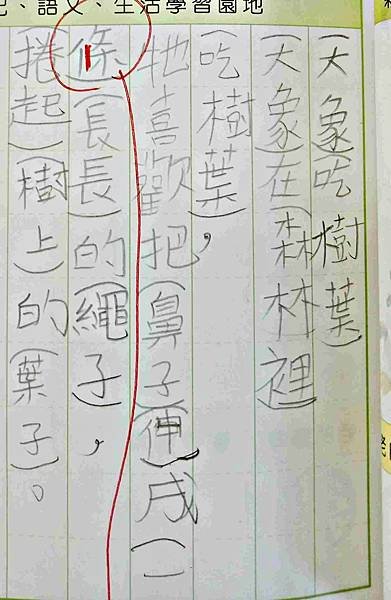 、語文、生活學習園地
(大象)(吃樹葉)
(大象)在(森林裡)
(吃樹葉),
牠喜歡把(鼻子)(伸)成(一
條)(長長)的(繩子),
(捲起)(樹上)的(葉子)。